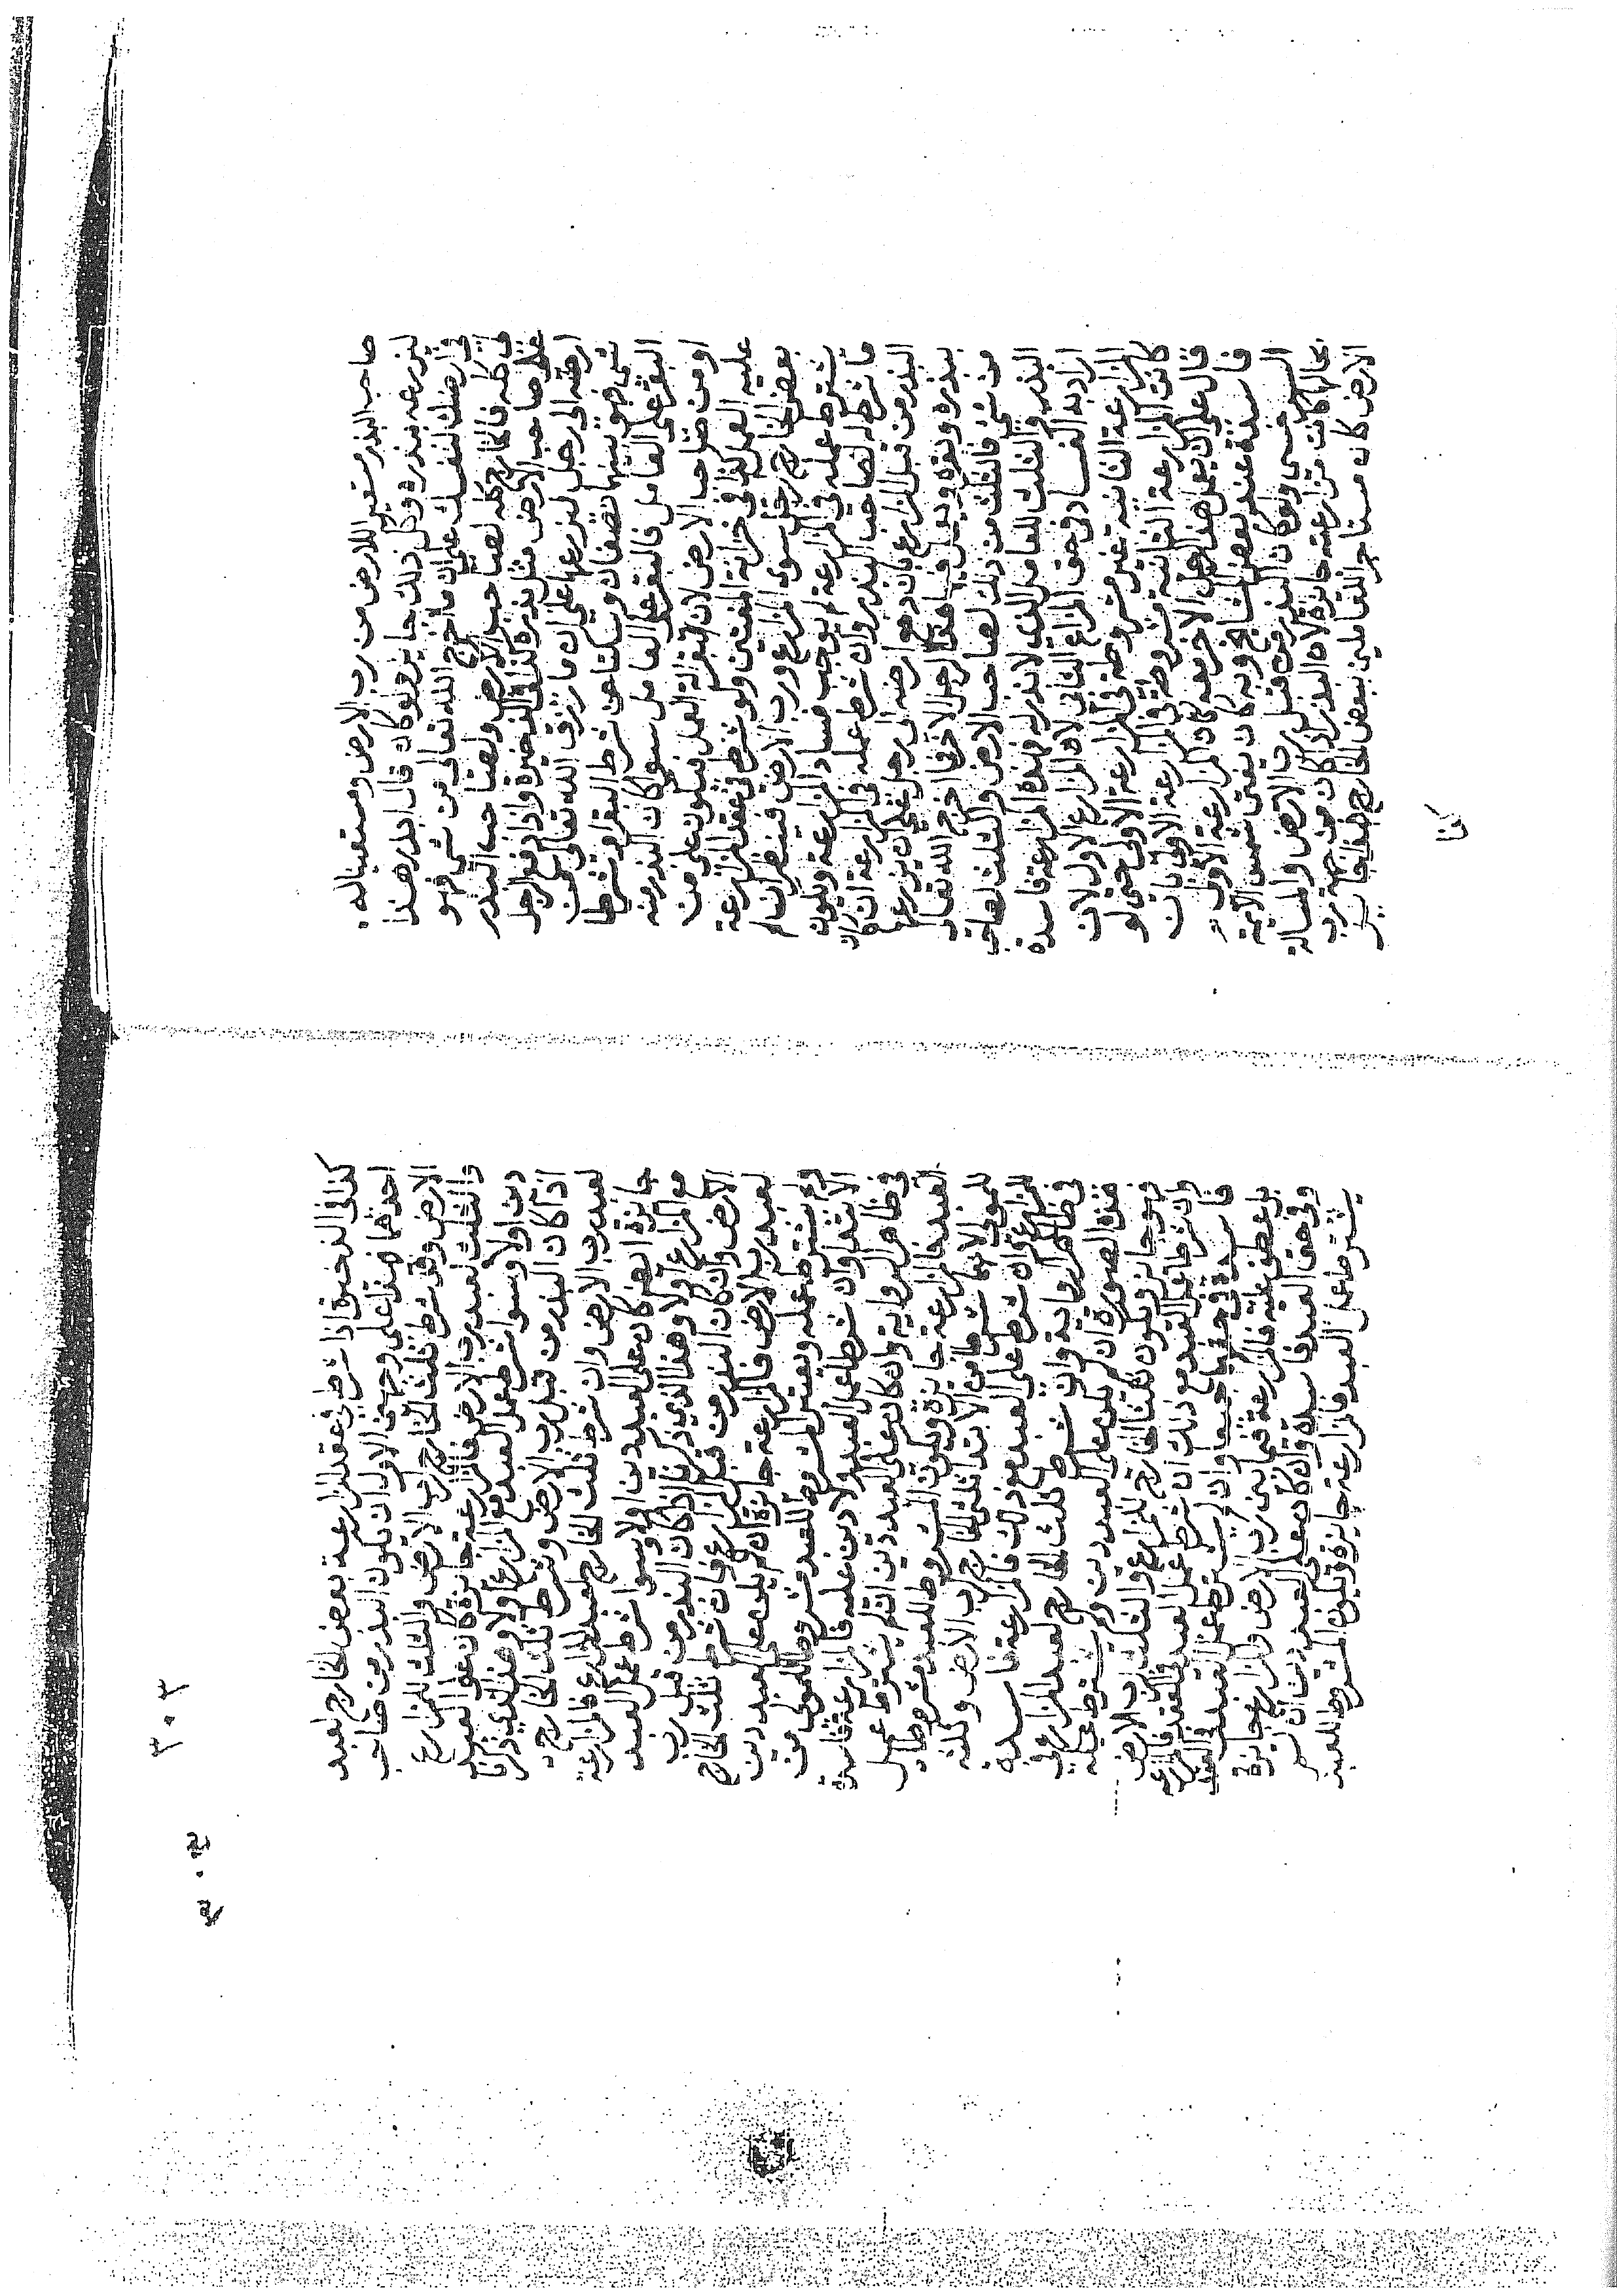 صاحب البذر مستعير للارض من رب الارض ومستعينا به
ليزرعه ببذره وكل ذلك جايز ولو كان قال ابذر هذا
في ارضك لنفسك على ان ما اخرج الله تعالى من شي فهو
لي كله فالخارج كله لصاحب الارض ولصاحب البذر
على صاحب الارض مثل بذره كذا في الذخيرة واذا دفع الرجل
ارضه الى رجل ليزرعها على ان ما رزق الله تعالى من
شي فهو بينهما نصفان وسكتا عن شرط البقر او شرطا
البقر على العامل فالبقر على العامل سوا كان البذر منه
او من صاحب الارض لان البقر الة العمل فيكون على من
عليه العمل كذا في خزانة المفتين ولو شرط في عقد المزارعة
بعض الخارج لرجل سوى المزارع ورب الارض فينظر ان لم
يشترط عمله في المزارعة لم يوجب فساد المزارعة ويكون
ما شرط له لصاحب البذر وان شرط عمله في المزارعة ان كان
البذر من قبل المزارع بان دفع ارضه الى رجل على ان يزرعها
ببذره وبقره ويعمل فيها هذا الرجل الاخر فما اخرج الله تعالى
من شي فالثلث من ذلك لصاحب الارض والثلث لصاحب
البذر والثلث للعامل الذي لا بذر له فهذه المزارعة فاسدة
اراد به الفساد في حق المزارع الثاني لا المزارع الاول لان
المزارعة الثانية غير مشروطة في المزارعة الاولى حتى لو
كانت المزارعة الثانية مشروطة في المزارعة الاولى بان
قال على ان يعمل هذا الرجل الاخر معه كان المزارعة الاولى
فاسدة عند بعض المشايخ وبه كان يفتى شمس الائمة
السرخسي ولو كان البذر من قبل رب الارض والمسالة
بحالها كانت مزارعة جائزة لان البذر اذا كان من جهة رب
الارض كان مستاجر للعاملين ببعض الخارج
كذا
٣٠٣
كذا في الذخيرة اذا شرط في عقد المزارعة بعض الخارج لعبد
احدهما فهذا على وجهين الاول ان يكون البذر من صاحب
الارض وقد شرط ثلث الخارج لرب الارض والثلث للمزارع
والثلث لعبد رب الارض فالمزارعة جائزة كان على العبد
دين اولا وسوا شرط عمل العبد مع المزارع اولا وهذا الذي ذكرنا
اذا كان البذر من قبل رب الارض وشرط ثلث الخارج
لعبد رب الارض وان شرط ثلث الخارج لعبد المزارع فالمزارعة
جائزة ايضا كان على العبد دين اولا وسوا شرط عمل العبد
مع المزارع اولا وهذا الذي ذكرنا اذا كان البذر من قبل رب
الارض وان كان البذر من قبل المزارع فان شرط ثلث الخارج
لعبد رب الارض فالمزارعة جائزة ان لم يكن على العبد دين
ولم يشترط عمله ويعتبر المشروط للعبد مشروطا للمولى من
الابتدا وان شرطا عمل العبد ولا دين عليه فالمزارعة فاسدة
في ظاهر الرواية وان كان على العبد دين ان لم يشترط عمل
العبد فالمزارعة جايزة ويكون المشروط للعبد مشروطا
للمولى لانهما شرطا من الابتدا ثلثي الخارج لرب الارض وثلثه
للمزارع وان شرط على العبد مع ذلك فالمزارعة فاسدة
في ظاهر الرواية وان شرط ثلث الخارج لعبد المزارع في
هذه الصورة ان لم يكن على العبد دين ولم يشترط عمله
فهو جائز ويكون ثلثا الخارج للمزارع والثلث لرب الارض
وان شرطا عمل العبد مع ذلك ان شرط عمل العبد في العقد فالمزارعة
فاسدة في حقهما جميعا وان لم يشترط عمل العبد في العقد
بل عطف عليه فالمزارعة فيما بين رب الارض والمزارع جايزة
وفي حق العبد فاسدة وان كان على العبد دين ان لم
يشترط عمل العبد فالمزارعة جايزة ويكون المشروط للعبد